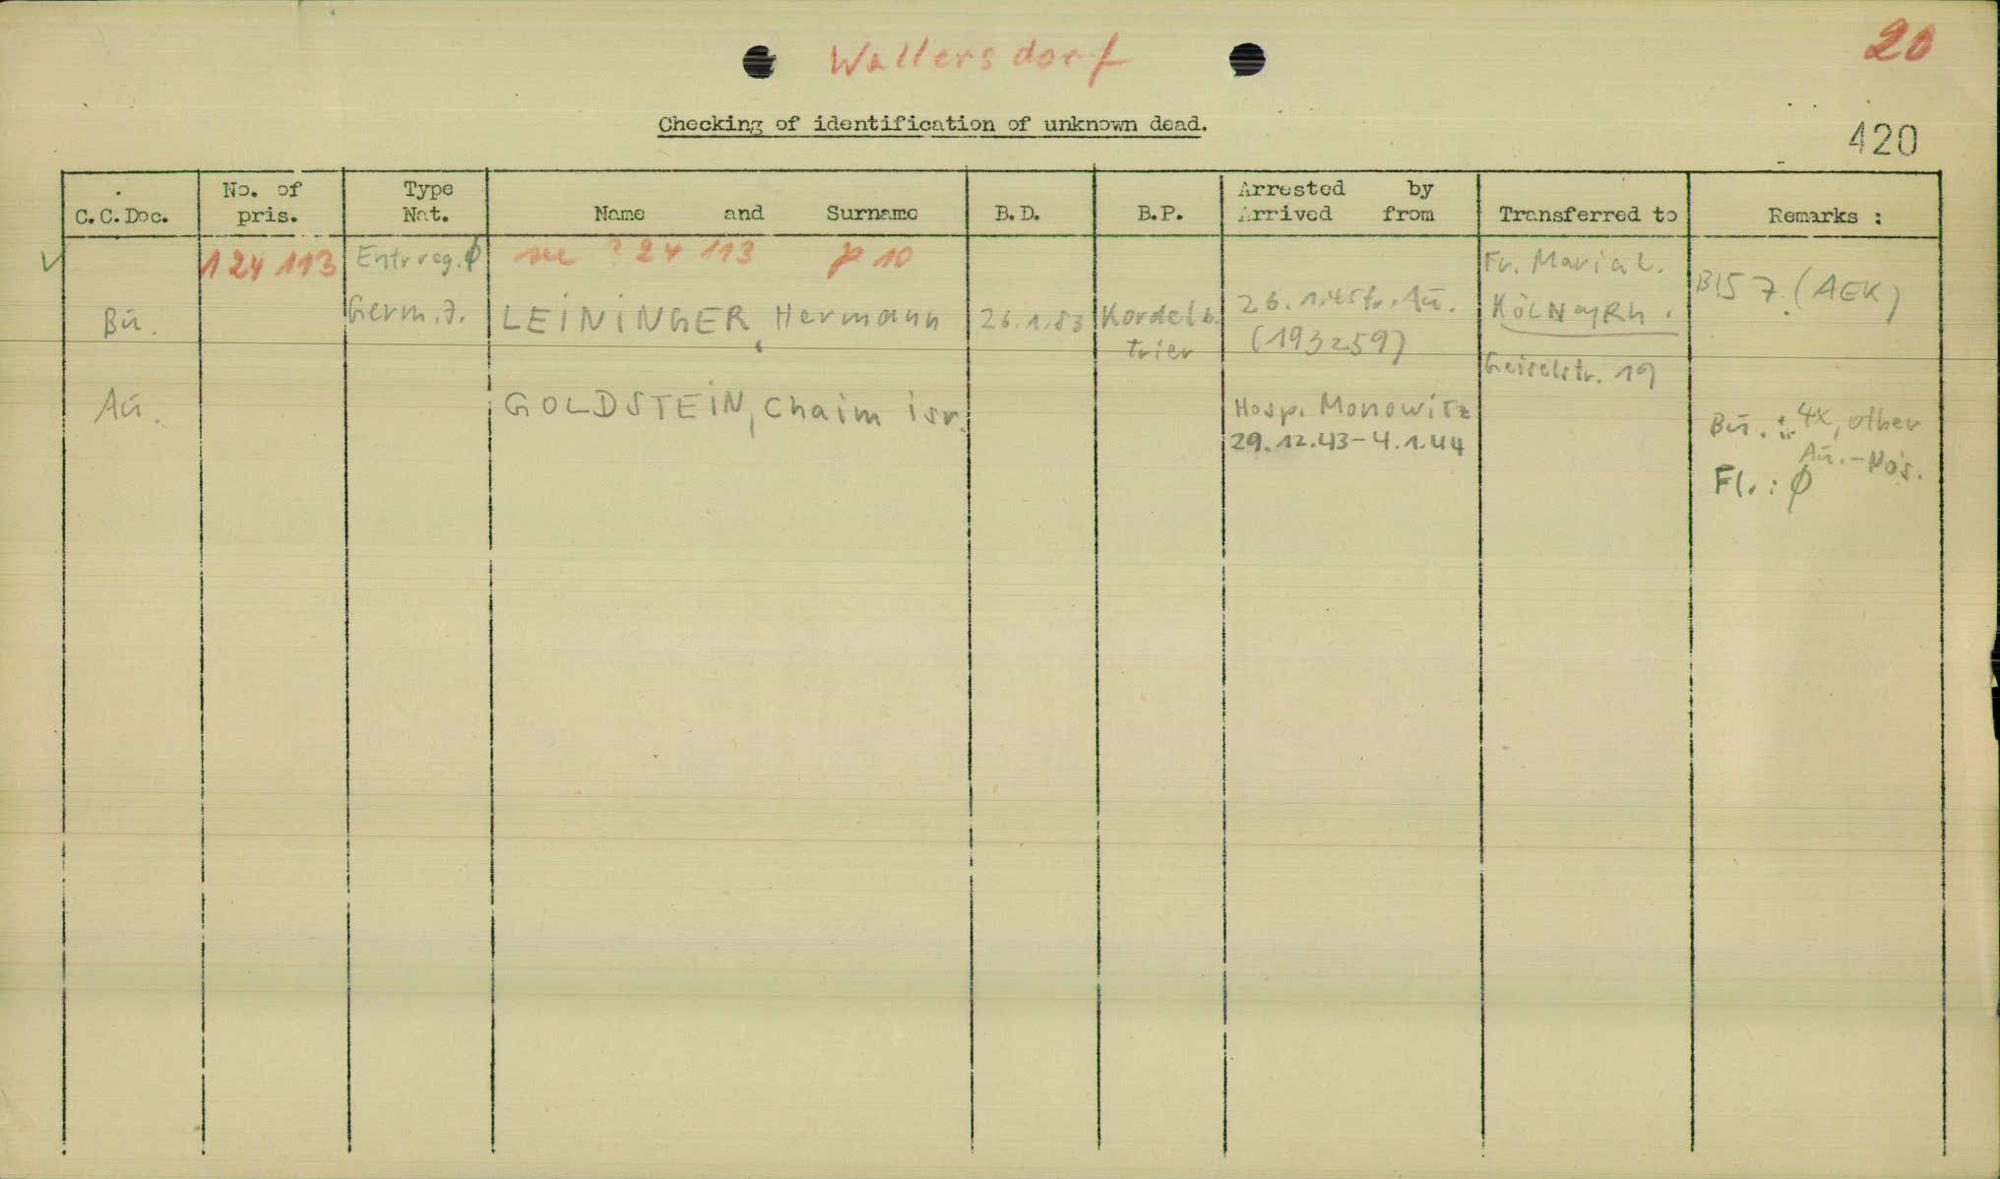 Wallersdorf
20
Checking of identification of unknown dead.
420
C.C.Doc.
No. of pris.
Type Nat.
Name and Surname
B.D.
B.P.
Arrested by
Arrived from
Transferred to
Remarks :
124 113
Entr reg. ø
see ? 24 113 p 10
Bu.
Germ. J.
LEININGER, Hermann
26.1.83
Kordel b. Trier
26.1.45 fr. Au.
(193259)
Fr. Maria L.
KÖLN a/Rh.
Geiselstr. 19
B15 7. (AEK)
Au.
GOLDSTEIN, Chaim isr.
Hosp. Monowitz
29.12.43-4.1.44
Bu. : 4x, other
Au.-No's.
Fl. : ø